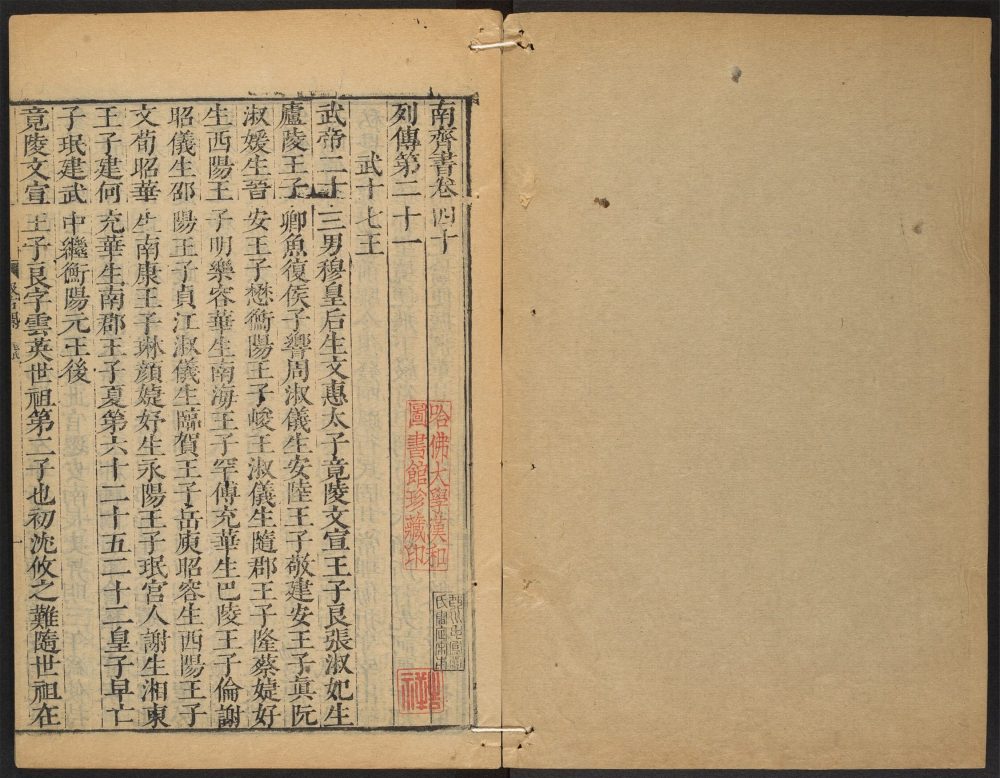 南齊書卷四十
列傳第二十一
武十七王
武帝二十三男穆皇后生文惠太子竟陵文宣王子良張淑妃生
廬陵王子卿魚復侯子響周淑儀生安陸王子敬建安王子真阮
淑媛生晉安王子懋衡陽王子峻王淑儀生隨郡王子隆蔡婕妤
生西陽王子明樂容華生南海王子罕傅充華生巴陵王子倫謝
昭儀生邵陽王子貞江淑儀生臨賀王子岳庾昭容生西陽王子
文荀昭華生南康王子琳顏婕妤生永陽王子珉宮人謝生湘東
王子建何充華生南郡王子夏第六十二十五二十二皇子早亡
子珉建武中繼衡陽元王後
竟陵文宣王子良字雲英世祖第二子也初沈攸之難隨世祖在
哈佛大學漢和
圖書館珍藏印